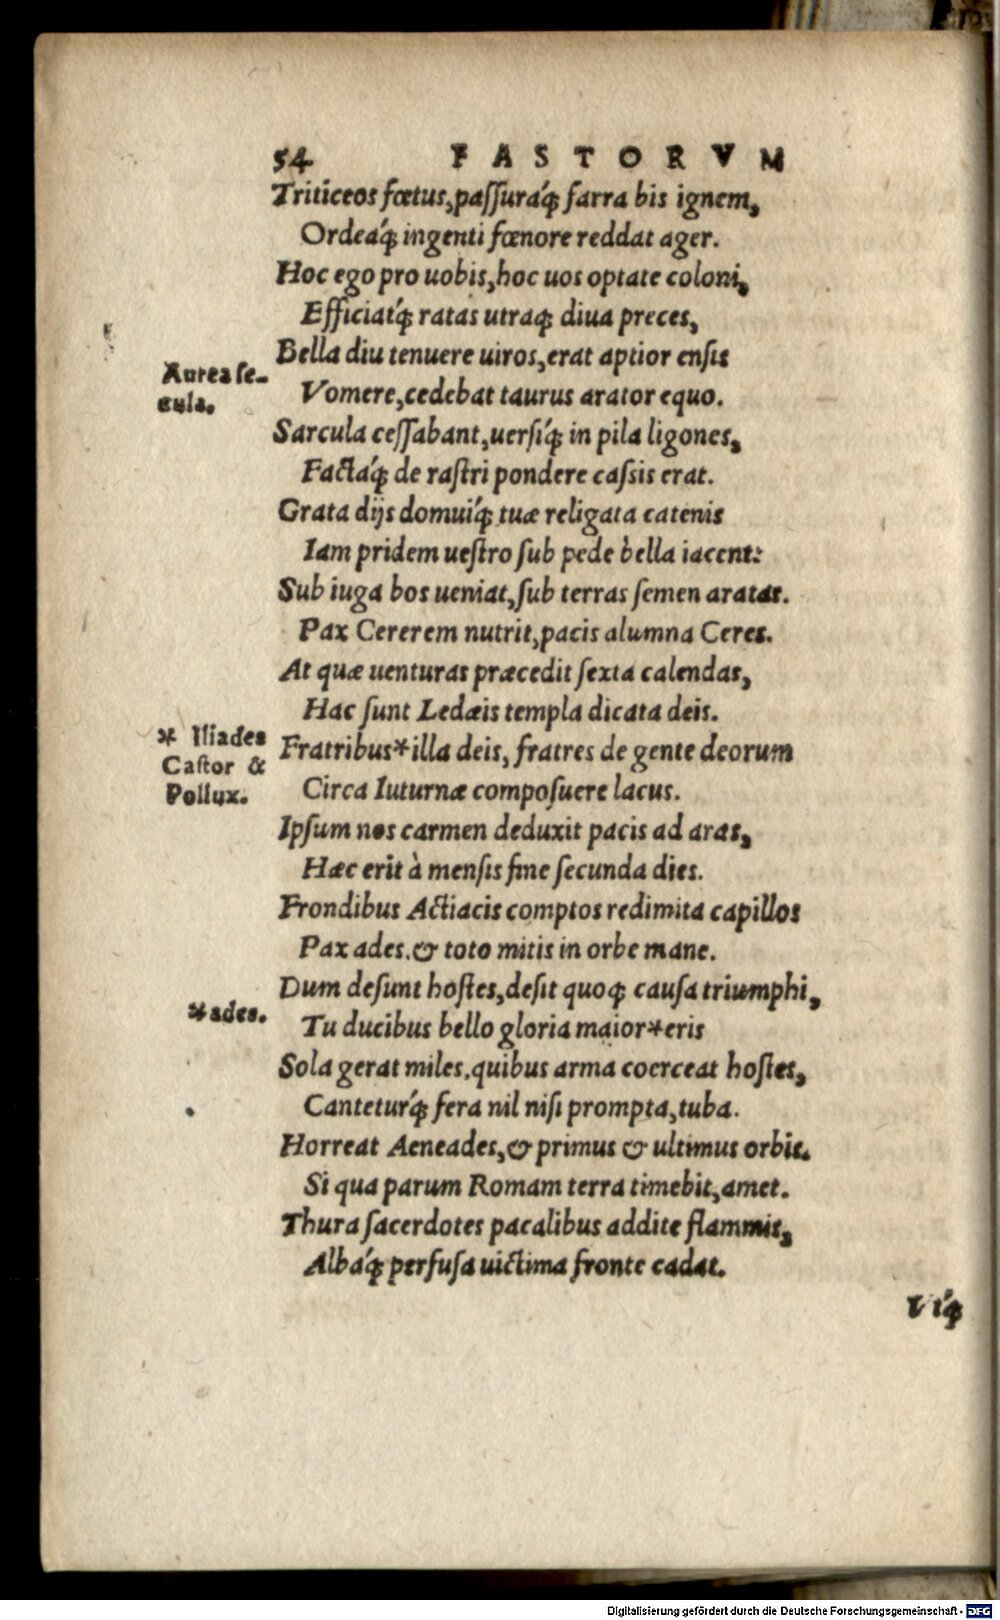 54 FASTORVM
Triticeos fœtus, paſſuraq́; farra bis ignem,
Ordeaq́; ingenti fœnore reddat ager.
Hoc ego pro uobis, hoc uos optate coloni,
Efficiatq́; ratas utraq; diua preces,
Bella diu tenuere uiros, erat aptior enſis
Aurea ſe-
cula.
Vomere, cedebat taurus arator equo.
Sarcula ceſſabant, uerſiq́; in pila ligones,
Factaq́; de raſtri pondere caſsis erat.
Grata dijs domuiq́; tuæ religata catenis
Iam pridem ueſtro ſub pede bella iacent:
Sub iuga bos ueniat, ſub terras ſemen aratas.
Pax Cererem nutrit, pacis alumna Ceres.
At quæ uenturas præcedit ſexta calendas,
Hac ſunt Ledæis templa dicata deis.
* Iliades
Caſtor &
Pollux.
Fratribus*illa deis, fratres de gente deorum
Circa Iuturnæ compoſuere lacus.
Ipſum nos carmen deduxit pacis ad aras,
Hæc erit à menſis fine ſecunda dies.
Frondibus Actiacis comptos redimita capillos
Pax ades. & toto mitis in orbe mane.
Dum deſunt hoſtes, deſit quoq; cauſa triumphi,
*ades.
Tu ducibus bello gloria maior*eris
Sola gerat miles, quibus arma coerceat hoſtes,
Canteturq́; fera nil niſi prompta, tuba.
Horreat Aeneades, & primus & ultimus orbis.
Si qua parum Romam terra timebit, amet.
Thura ſacerdotes pacalibus addite flammis,
Albaq́; perfuſa uictima fronte cadat.
Vtq́;
Digitalisierung gefördert durch die Deutsche Forschungsgemeinschaft - DFG